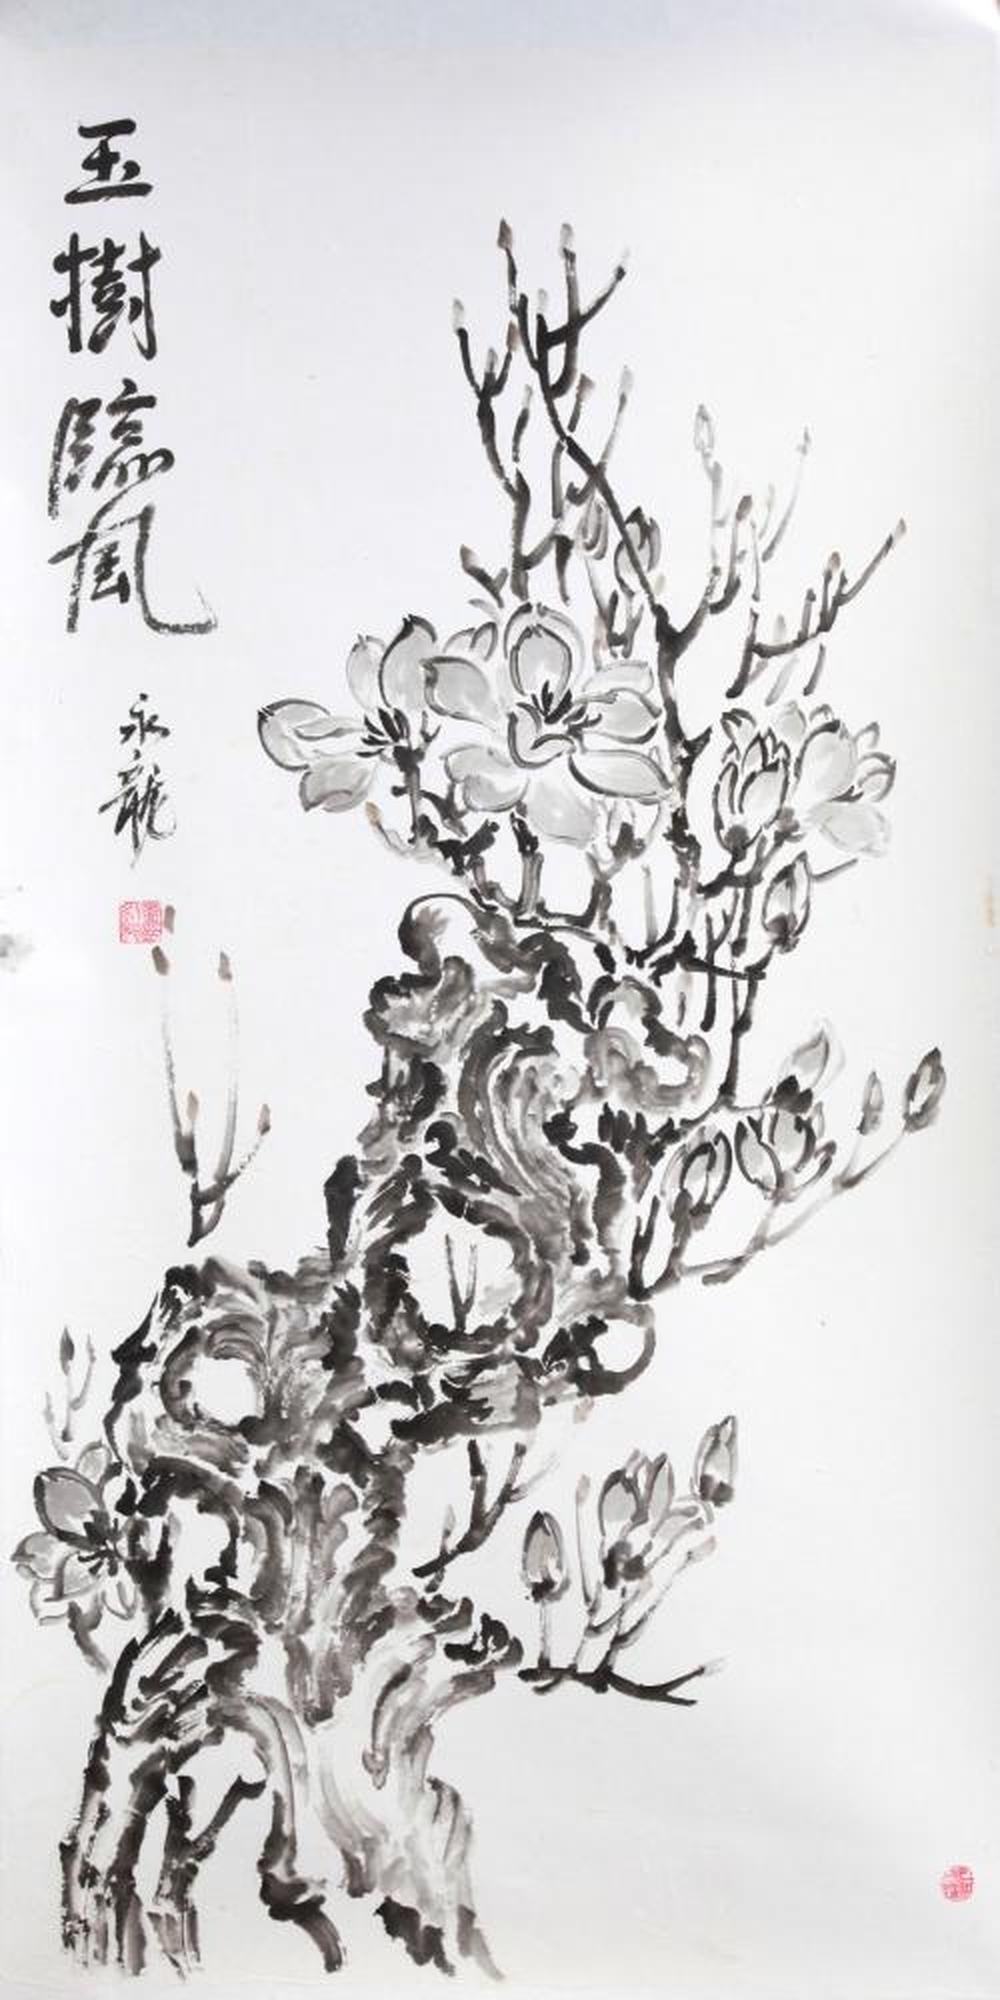 玉樹臨風
永龍